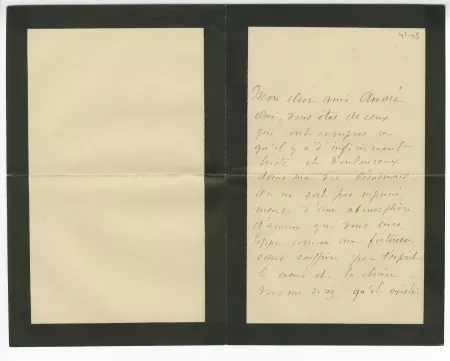 41-53
Mon cher ami André
Oui, vous êtes de ceux
qui ont compris ce
qu'il y a d'infiniment
triste et douloureux
dans ma vie désormais.
On ne sort pas impuné
ment d'une atmosphère
d'amour qui vous enve
loppa comme une
sans souffrir par l'esprit
le cœur et la chair
vous me direz qu'il existe